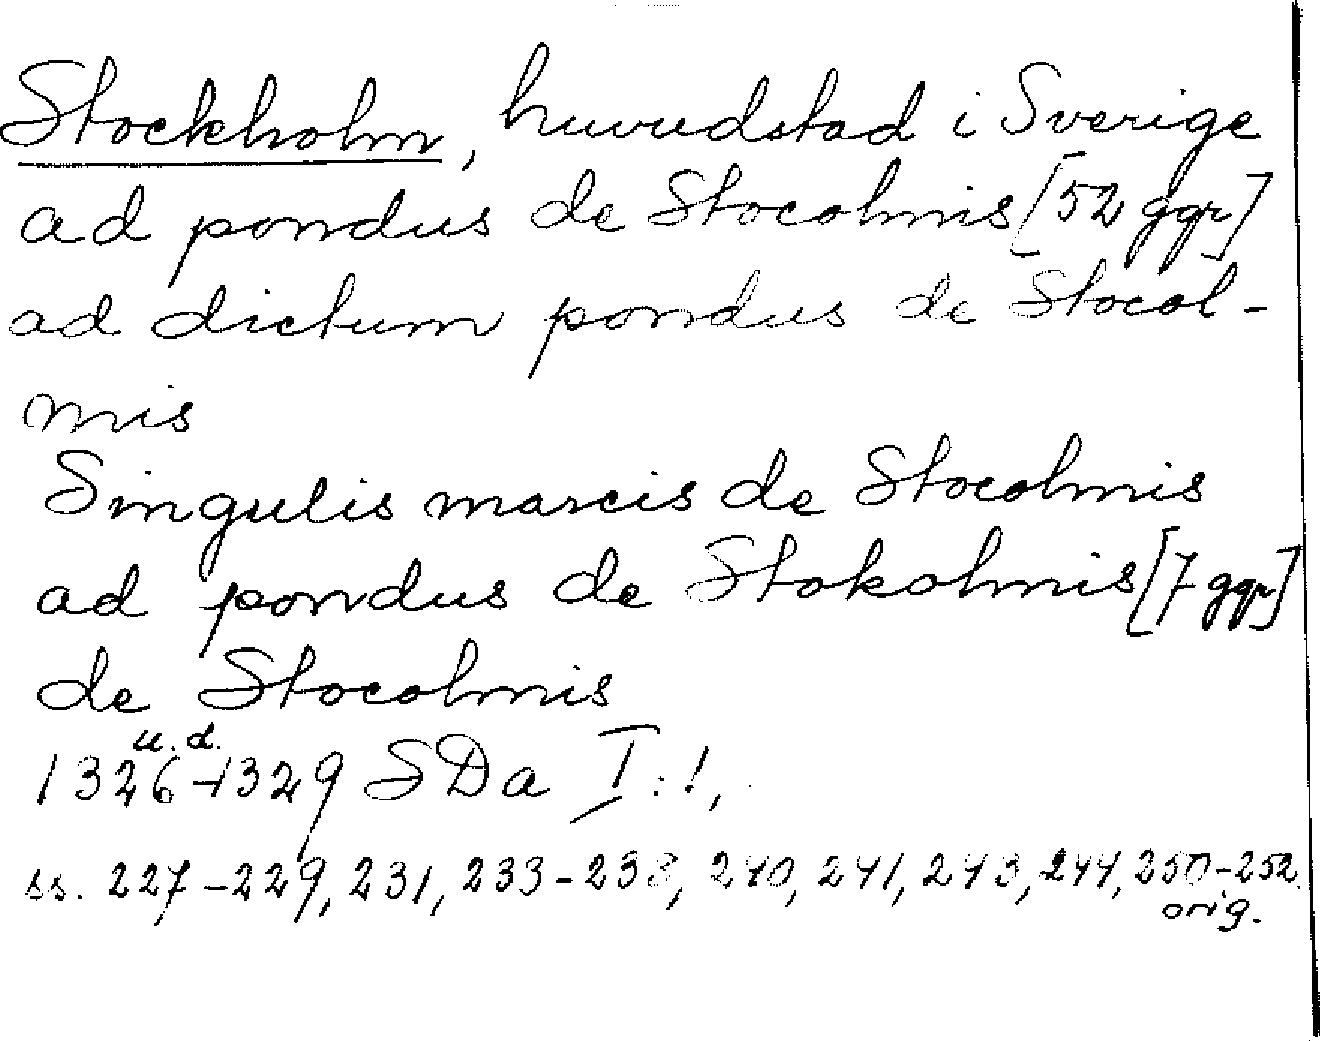 Stockholm, huvudstad i Sverige
ad pondus de Stocolmis [52 ggr]
ad dictum pondus de Stocol-
mis
Singulis marcis de Stocolmis
ad pondus de Stokolmis [7 ggr]
de Stocolmis
u. d.
1326-1329 SDa I:1,
ss. 227-229, 231, 233-238, 240, 241, 243, 244, 250-252.
orig.